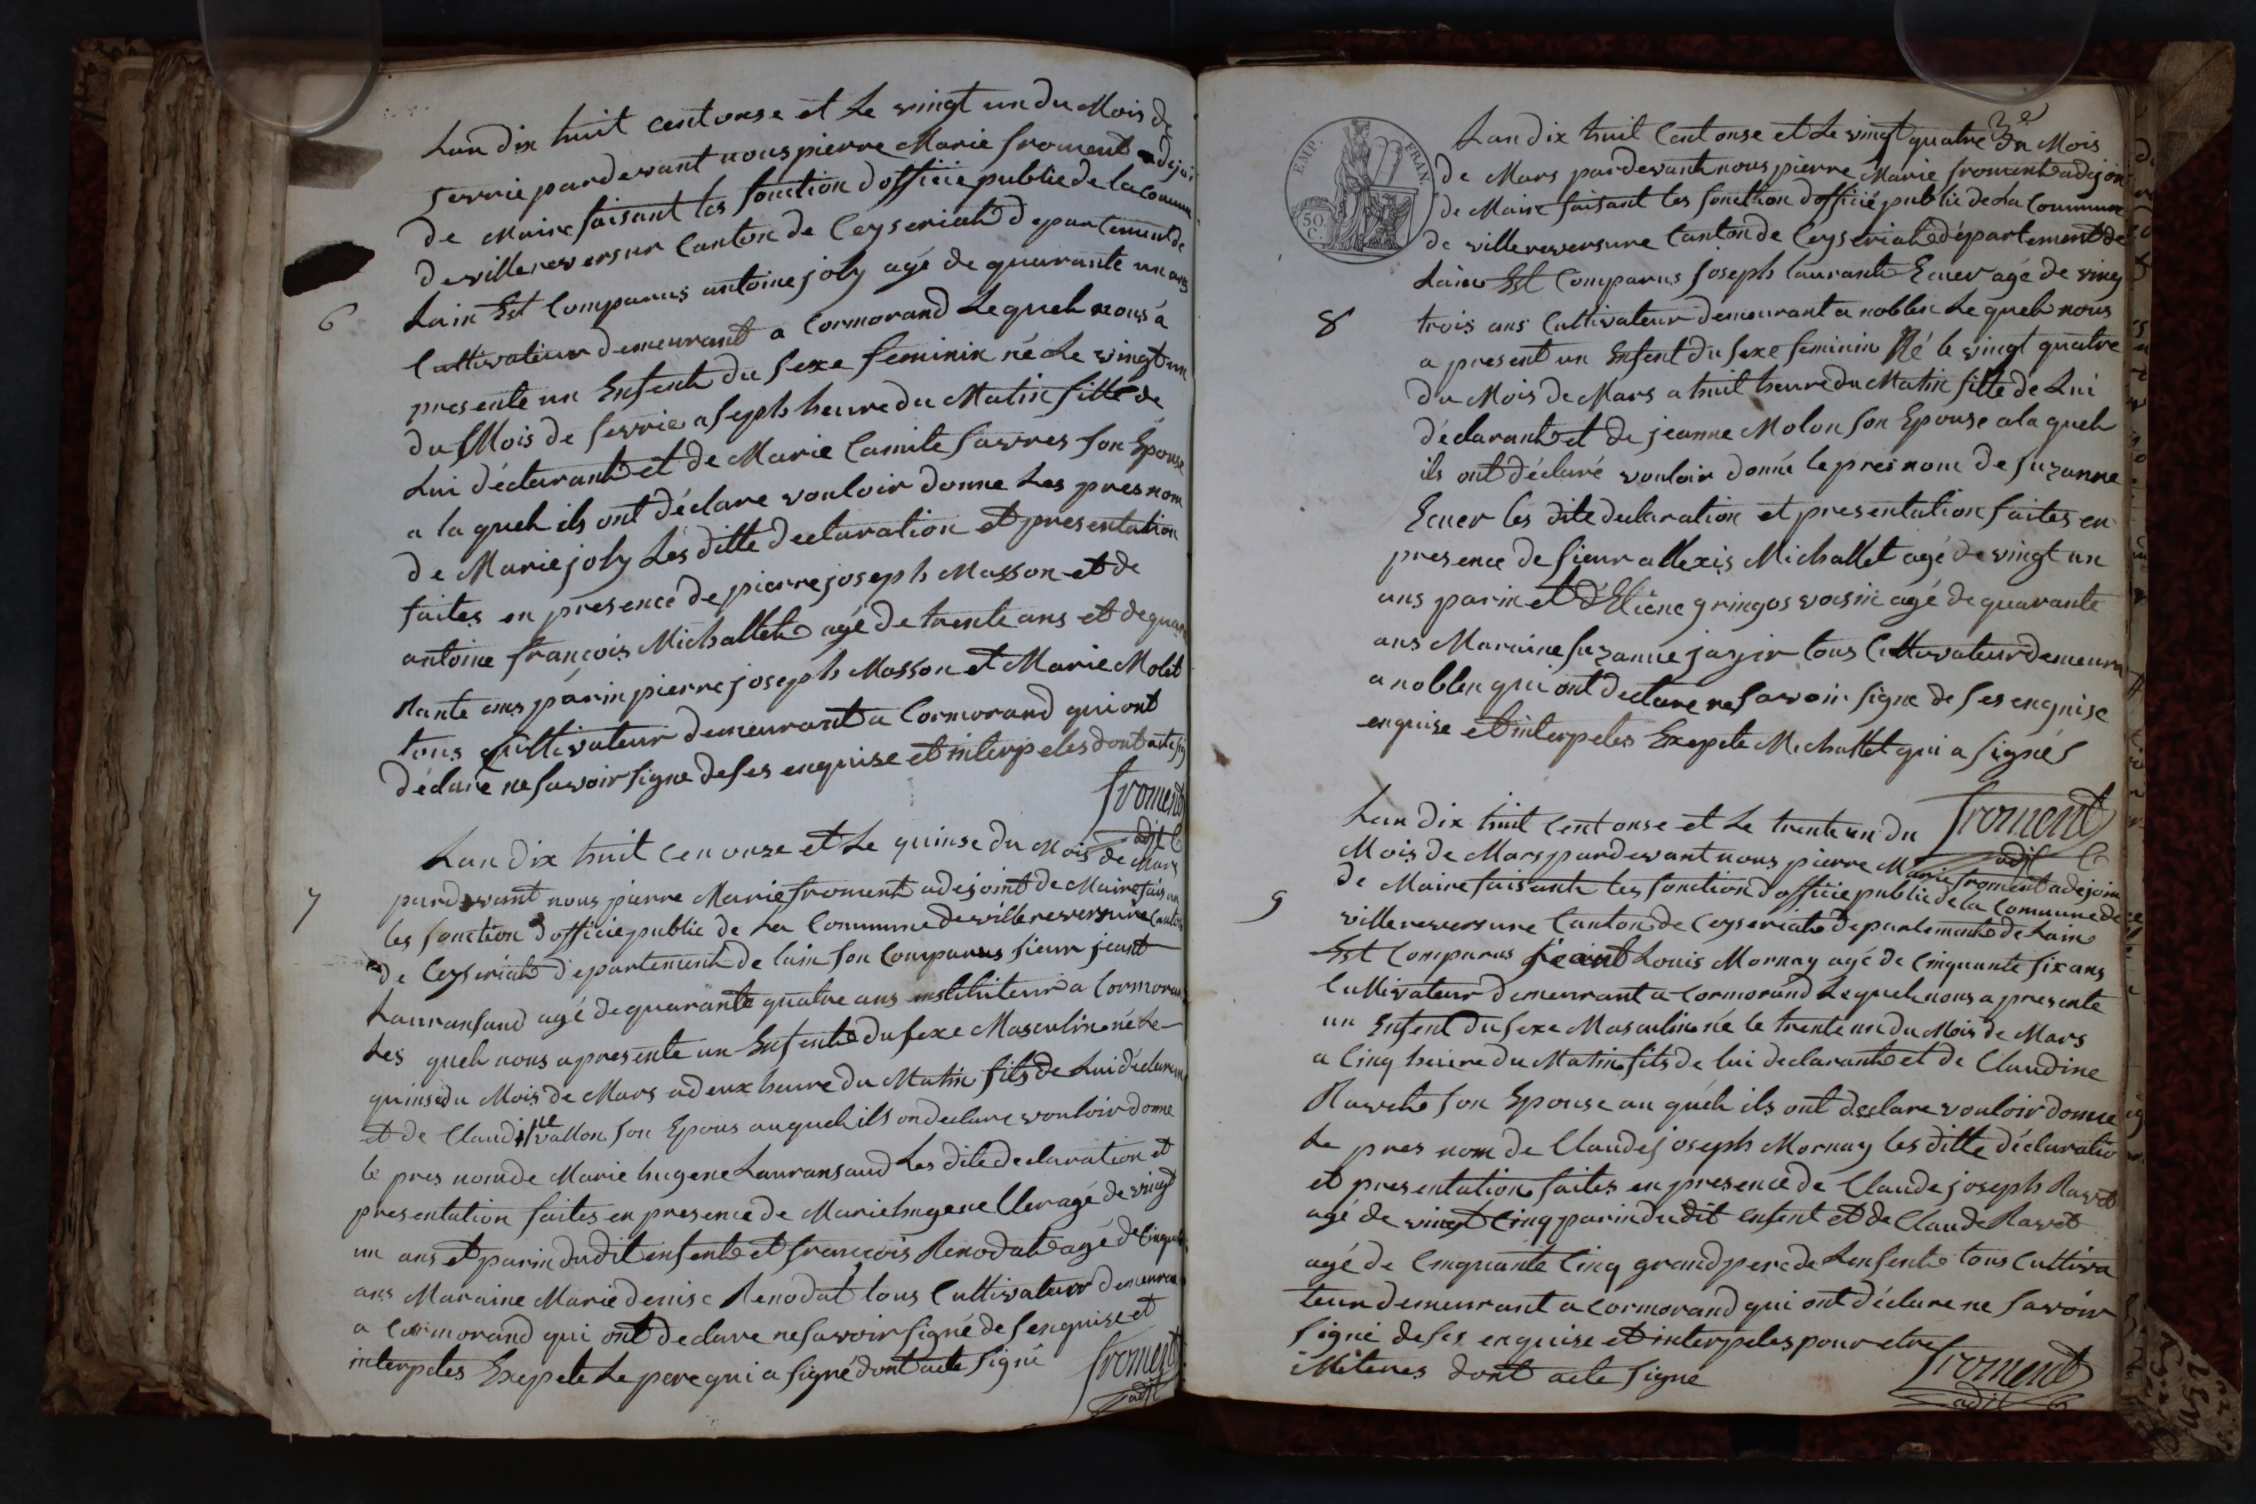 Lan dix huit cent onse et Le vingt un du Mois de
fevrie pardevant nous pierre Marie froment adejoi
de Maire faisant les fonction dofficie publie de la Commune
de villereversur Canton de Ceyseriah departement de
6
Lain Est Comparus antoine joly agé de quarante un ans
Cultivateur demeurant a Cormorand Lequeh nous à
presente un Enfent du sexe feminin né Le vingt un
du Mois de fevrie a seph heure du Matin fille de
Lui déclarant et de Marie Camile favres son Epouse
a la queh ils ont déclare vouloir donne Les presnom
de Marie joly Les ditte declaration et presentation
faites en presence de pierre joseph Masson et de
antoine françois Michalleh agé de trente ans et de quar
rante ans párin pierre joseph Masson et Marie Molet
tous Cultivateur demeurant a Cormorand qui ont
déclaré ne savoir signe de ses enquise et interpeles dont acte sig
froment
adjt
Lan dix huit cen onze et Le quinse du Mois de Mars
7
pardevant nous pierre Marie froment adejoint de Maire faisan
les fonction d officie publie de La Commune de villereversure Canton
de Ceyseriah departement de lain son Comparus sieur jeant
Lauransaud agé de quarante quatre ans instituteur a Cormoran
Les queh nous a presente un Enfenh du sexe Masculin né Le
quinse du Mois de Mars a deux heure du Matin fils de Lui déclarent
et de Claudine vallon son Epous au queh ils on declare vouloir donne
le pres nom de Marie hugene Lauransaud Les dite declaration et
presentation faites en presence de Marie hugene Cler agé de vingt
un ans et parin dudit enfent et françois Renodat agé de Cinquante
ans Maraine Marie denise Renodat tous Cultivateur demeuran
a Cormorand qui ont declare ne savoir signé de senquise et
interpeles Exepete Le pere qui a signé dont acte signé
froment
adjt
EMP. FRAN.
50
C.
Lan dix huit Cent onse et Le vingt quatre du Mois
de Mars pardevant nous pierre Marie froment adejoin
de Maire faisant les fonction dofficié publie de La Commune
de villereversure Canton de Ceyseriah département de
Lain Est Comparus joseph laurant Ecuer agé de ving
8
trois ans Cultivateur demeurant a noblen Le queh nous
a present un Enfent du sexe feminin Né le vingt quatre
du Mois de Mars a huit heure du Matin fille de Lui
déclarant et de jeanne Molon son Epouse a la queh
ils ont déclaré vouloir donné le presnom de suzanne
Ecuer les dite declaration et presentation faites en
presence de sieur allexis Michallet agé de vingt un
ans parin et d'Etiene gringos voisin agé de quarante
ans Maraine suzanne jasjir tous Cultivateur demeuran
a noblen qui ont declare ne savoir signe de ses enquise
enquise et interpeles Exepete Michallet qui a signés
froment
adjt
Lan dix huit cent onse et Le trente un du
Mois de Mars pardevant nous pierre Marie froment adejoin
de Maire faisant les fonction d officie publie de la Commune de
9
villereversure Canton de Ceyseriah departement de Lain
Est Comparus Louis Mornay agé de Cinquante six ans
Cultivateur demeurant a Cormorand Lequeh nous a presente
un Enfent du sexe Masculin né le trente un du Mois de Mars
a Cinq heure du Matin fils de lui declarant et de Claudine
Raveh son Epouse au quéh ils ont declare vouloir donne
Le pres nom de Claude joseph Mornay les ditte déclaratio
et presentation faites en presence de Claude joseph Ravet
agé de vingt Cinq parin dudit enfent et de Claude Ravet
agé de Cinquante Cinq grand pere de Lenfent tous Cultiva
teur demeurant a Cormorand qui ont déclare ne savoir
signé de ses enquise et interpeles pour etre
ileteres dont acte signe
froment
adjt